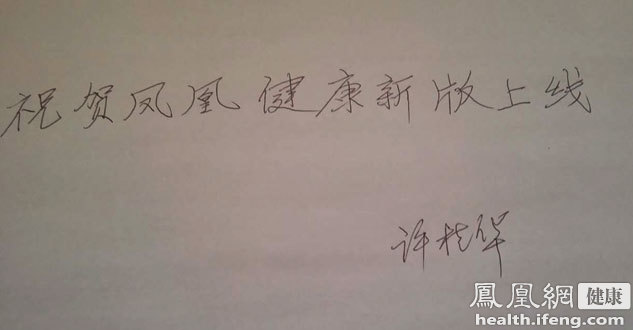 祝贺凤凰健康新版上线
许桂华
鳳凰網 健康
health.ifeng.com